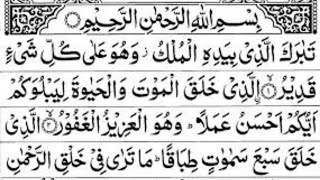 بِسْمِ اللهِ الرَّحْمٰنِ الرَّحِيْمِ
تَبٰرَكَ الَّذِیْ بِیَدِهِ الْمُلْكُ ز وَهُوَ عَلٰی كُلِّ شَیْءٍ
قَدِیْرُ ۙ﴿۱﴾ الَّذِیْ خَلَقَ الْمَوْتَ وَالْحَیٰوةَ لِیَبْلُوَكُمْ
اَیُّكُمْ اَحْسَنُ عَمَلًا ؕ وَهُوَ الْعَزِیْزُ الْغَفُوْرُ ۙ﴿۲﴾ الَّذِیْ
خَلَقَ سَبْعَ سَمٰوٰتٍ طِبَاقًا ؕ مَا تَرٰی فِیْ خَلْقِ الرَّحْمٰنِ